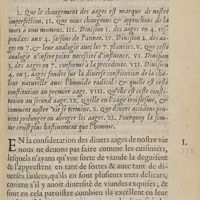 1. Que le changement des aages est marque de nostre
imperfection. II. Que nous changeons & approchons de la
mort, à tout moment. III. Division des aages en 4. res-
pondans aux 4. saisons de l'annee. IV. Division des aa-
ges en 7. & leur analogie avec les 7. planetes. V. Que ceste
analogie n'infere point necessité d'influence. VI. Division
des aages en 7. conforme à la precedente. VII. Division
en 3. aages fondee sur la diverse constitution de la cha-
leur naturelle avec l'humide radical: & quelle est ceste
constitution au premier aage. VIII. Quelle est ceste consti-
tution au second aage. IX. Quelle en l'aage troisiesme, &
comment mesler par le terme. X. Que divers accidens peuvent
prolonger ou abreger les aages. XI. Pourquoy la fem-
me croist plus hastivement que l'homme.
EN la consideration des divers aages de nostre vie
nous ne devons pas faire comme les cuisiniers,
lesquels n'ayans qu'une forte de viande la deguisent
& l'apprestent en tant de sortes & avec tant de di-
verses saulces, qu'ils en font plusieurs mets delicats,
comme s'il y avoit diversité de viandes exquises, &
font en cela paroistre combien ils excellent en leur
I.